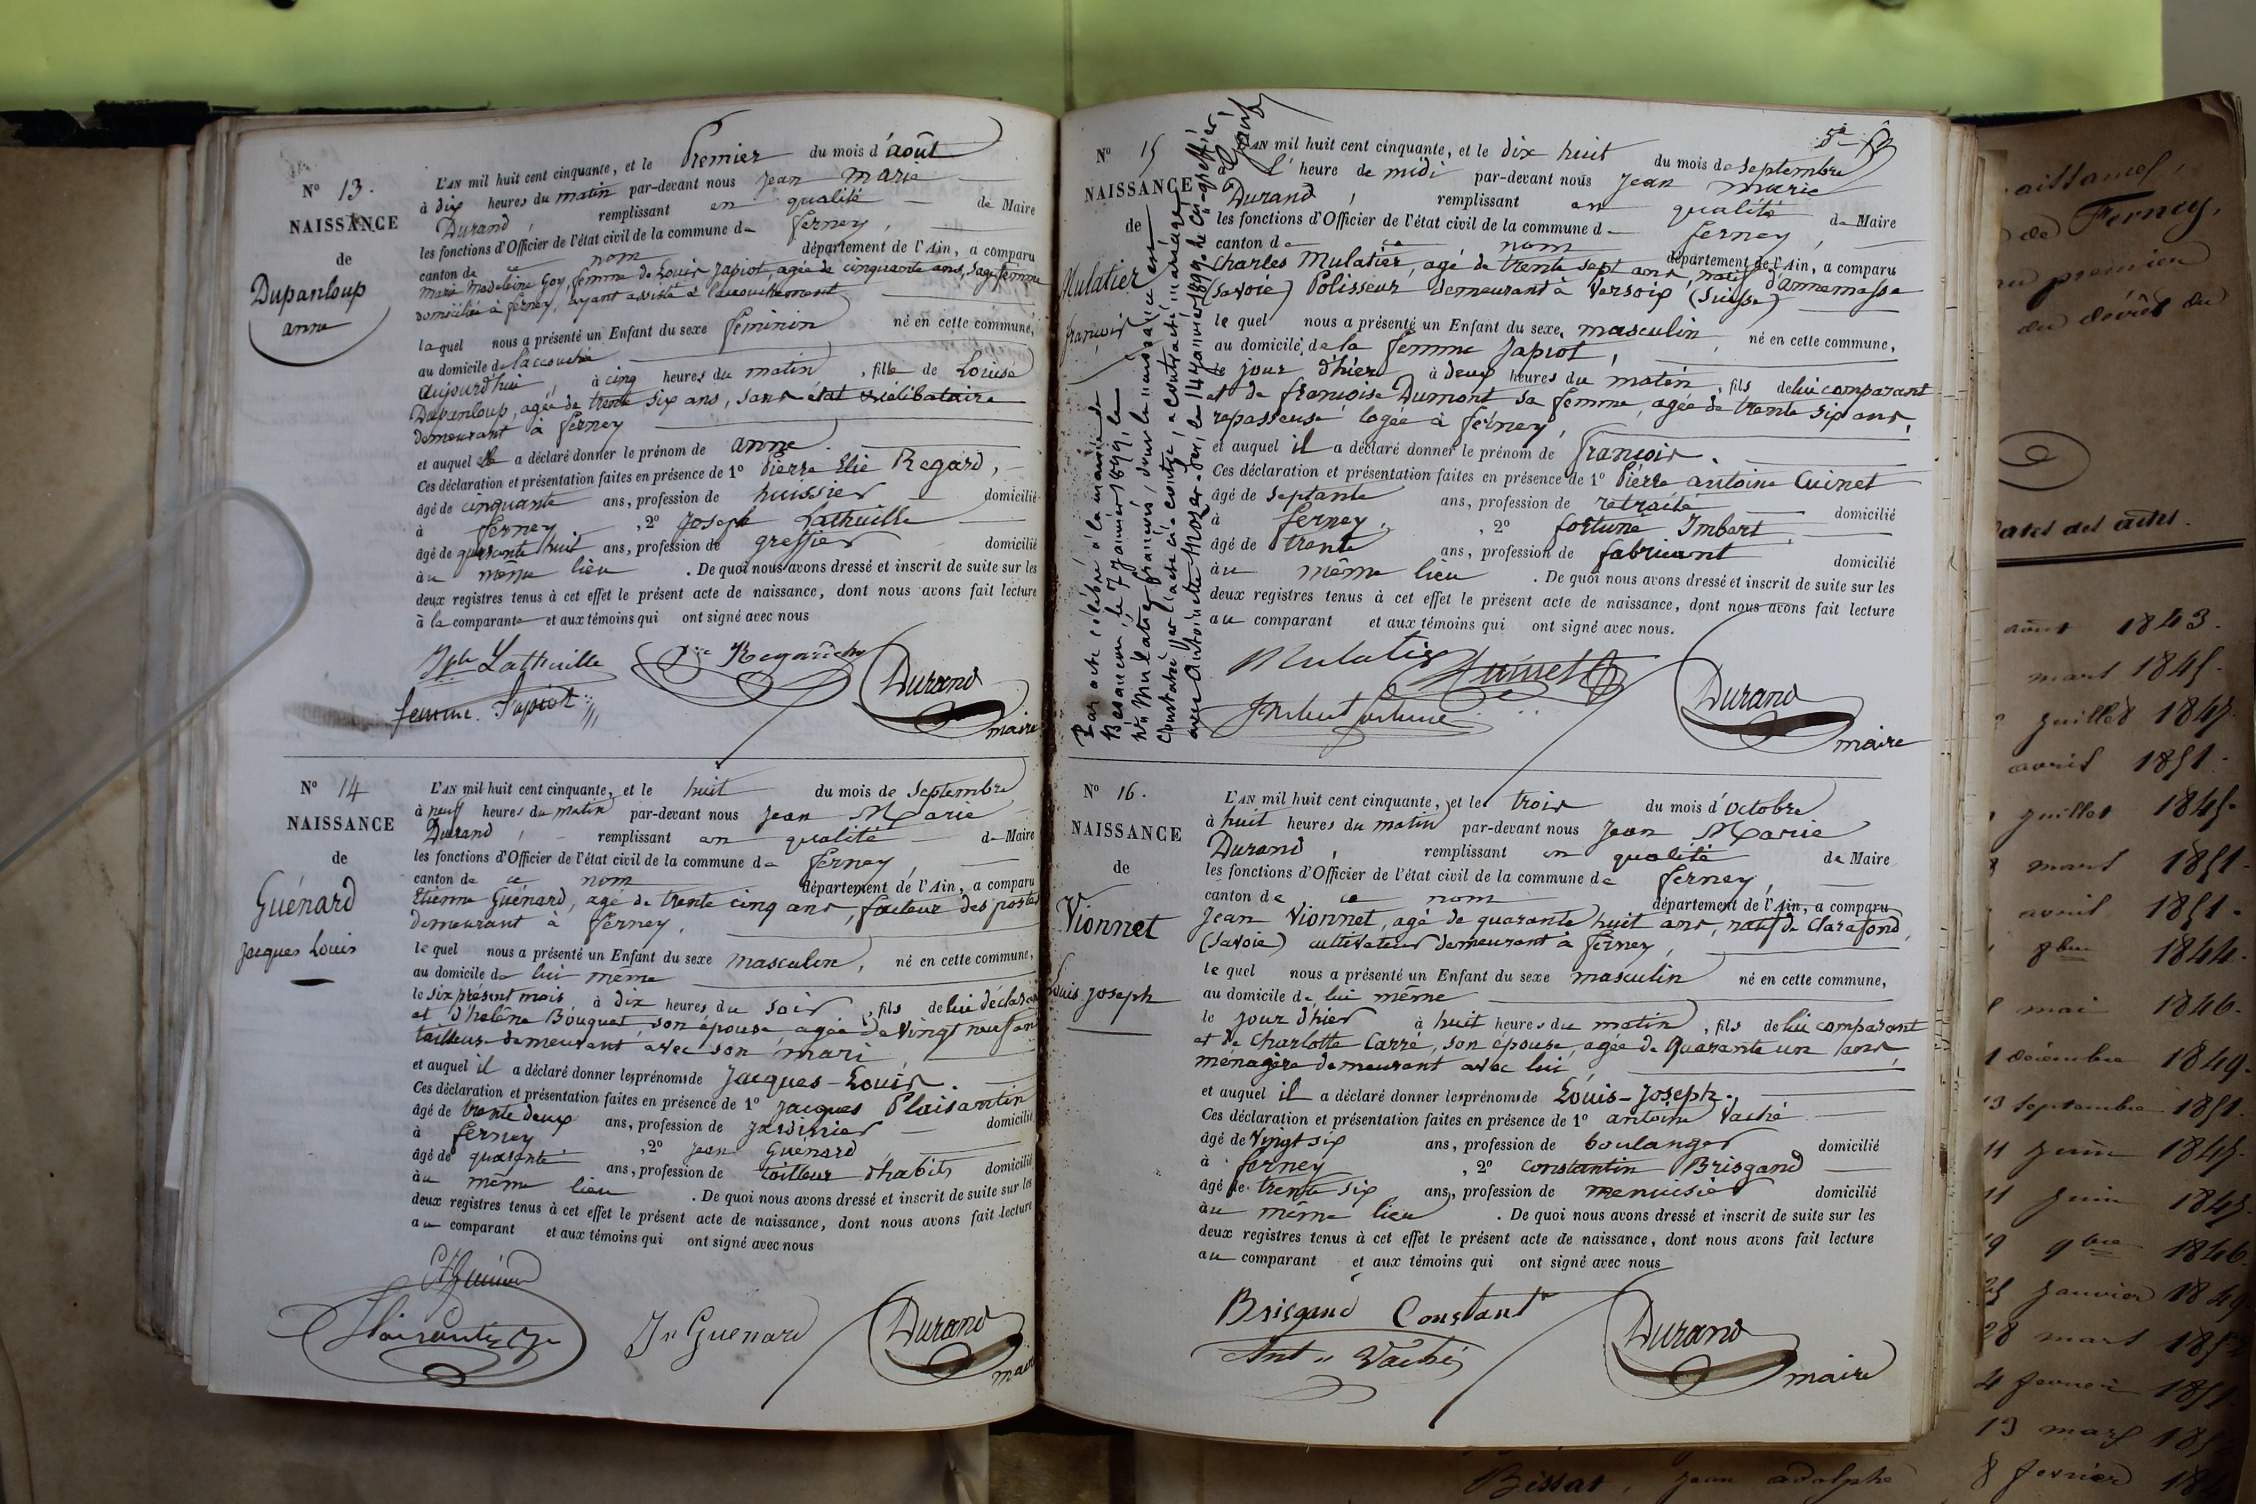 N° 13.
NAISSANCE
de
Dupanloup
anne
L'AN mil huit cent cinquante, et le Premier du mois d'août
à dix heures du matin par-devant nous jean marie
Durand, remplissant en qualité de Maire
les fonctions d'Officier de l'état civil de la commune de ferney,
canton de ce nom département de l'Ain, a comparu
marie Madeleine Goy, femme de Louis Japiot, agée de cinquante ans, sage femme
domiciliée à ferney, ayant assisté à l'accouchement
laquel nous a présenté un Enfant du sexe féminin né en cette commune,
au domicile de l'accouchée
aujourd'hui, à cinq heures du matin, fille de Louise
Dupanloup, agée de trente six ans, sans état célibataire
demeurant à ferney
et auquel elle a déclaré donner le prénom de anne.
Ces déclaration et présentation faites en présence de 1° Pierre Elie Regard,
âgé de cinquante ans, profession de huissier domicilié
à ferney, 2° joseph Lathuille
âgé de quarante huit ans, profession de greffier domicilié
au même lieu. De quoi nous avons dressé et inscrit de suite sur les
deux registres tenus à cet effet le présent acte de naissance, dont nous avons fait lecture
à la comparante et aux témoins qui ont signé avec nous
Jph Lathuille
femme Japiot
Durand
maire
N° 14
NAISSANCE
de
Guénard
jacques Louis
L'AN mil huit cent cinquante, et le huit du mois de septembre
à neuf heures du matin par-devant nous jean Marie
Durand, remplissant en qualité de Maire
les fonctions d'Officier de l'état civil de la commune de ferney,
canton de ce nom département de l'Ain, a comparu
Etienne Guénard, agé de trente cinq ans, facteur des postes
demeurant à ferney,
le quel nous a présenté un Enfant du sexe masculin, né en cette commune,
au domicile de lui même
le six présent mois, à dix heures du soir, fils de lui déclarant
et d'helène Bouquet, son épouse, agée de vingt neuf ans
tailleuse demeurant avec son mari,
et auquel il a déclaré donner les prénoms de jacques-Louis.
Ces déclaration et présentation faites en présence de 1° jacques Plaisantin
âgé de trente deux ans, profession de jardinier domicilié
à ferney, 2° jean Guénard
âgé de quarante ans, profession de tailleur d'habits domicilié
au même lieu. De quoi nous avons dressé et inscrit de suite sur les
deux registres tenus à cet effet le présent acte de naissance, dont nous avons fait lecture
au comparant et aux témoins qui ont signé avec nous
Jn Guenard
Durand
maire
N° 15
NAISSANCE
de
Mulatier
françois
L'AN mil huit cent cinquante, et le dix huit du mois de septembre
à l'heure de midi par-devant nous jean marie
Durand, remplissant en qualité de Maire
les fonctions d'Officier de l'état civil de la commune de ferney,
canton de ce nom département de l'Ain, a comparu
Charles Mulatier, agé de trente sept ans, natif d'annemasse
(savoie) Polisseur demeurant à Versoix (suisse)
le quel nous a présenté un Enfant du sexe masculin, né en cette commune,
au domicile de la femme Japiot,
le jour d'hier à deux heures du matin, fils de lui comparant
et de françoise Dumont sa femme, agée de trente six ans,
repasseuse logée à ferney,
et auquel il a déclaré donner le prénom de françois.
Ces déclaration et présentation faites en présence de 1° Pierre antoine Cuinet
âgé de septante ans, profession de retraité domicilié
à ferney, 2° fortune Imbert
âgé de trente ans, profession de fabricant domicilié
au même lieu. De quoi nous avons dressé et inscrit de suite sur les
deux registres tenus à cet effet le présent acte de naissance, dont nous avons fait lecture
au comparant et aux témoins qui ont signé avec nous.
Mulatier
Cuinet
Imbert fortune
Durand
maire
Par acte célébré à la mairie de
Besançon, le 7 janvier 1899, le
né Mulatier françois, dont la naissance est
constatée par l'acte ci-contre, a contracté mariage
avec Antoinette le 14 janvier 1899. Le greffier,
N° 16.
NAISSANCE
de
Vionnet
Louis joseph
L'AN mil huit cent cinquante, et le trois du mois d'octobre
à huit heures du matin par-devant nous jean Marie
Durand, remplissant en qualité de Maire
les fonctions d'Officier de l'état civil de la commune de ferney,
canton de ce nom département de l'Ain, a comparu
jean Vionnet, agé de quarante huit ans, natif de Clarafond,
(savoie) cultivateur demeurant à ferney,
le quel nous a présenté un Enfant du sexe masculin né en cette commune,
au domicile de lui même
le jour d'hier à huit heures du matin, fils de lui comparant
et de Charlotte Carré, son épouse, agée de Quarante un ans,
ménagère demeurant avec lui,
et auquel il a déclaré donner les prénoms de Louis-joseph.
Ces déclaration et présentation faites en présence de 1° antoine Vaché
âgé de Vingt six ans, profession de boulanger domicilié
à ferney, 2° constantin Brisgand
âgé de trente six ans, profession de menuisier domicilié
au même lieu. De quoi nous avons dressé et inscrit de suite sur les
deux registres tenus à cet effet le présent acte de naissance, dont nous avons fait lecture
au comparant et aux témoins qui ont signé avec nous
Brisgand Constant
Ant Vaché
Durand
maire
de Ferney,
premier
du décès du
Dates des actes.
août 1843.
mars 1845.
juillet 1847.
avril 1851.
juillet 1845.
mars 1851.
avril 1851.
8bre 1844.
mai 1846.
décembre 1849.
13 septembre 1851.
11 juin 1845.
11 juin 1845.
9bre 1846.
janvier 1849
28 mars
4 fevrier 1851
13 mars
8 fevrier
Bissat, jean adolphe